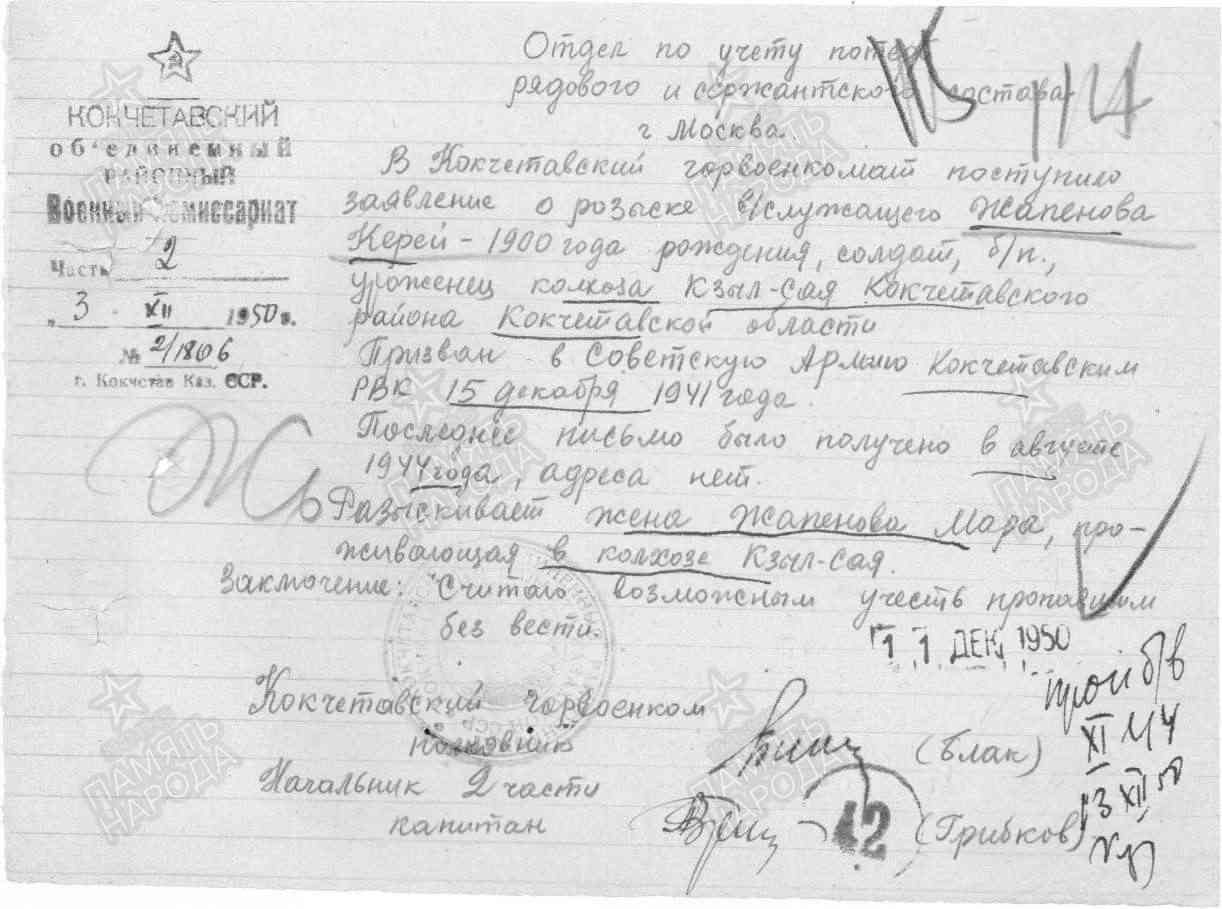 КОКЧЕТАВСКИЙ
об'единенный
РАЙОННЫЙ
Военный Комиссариат
Часть 2
„ 3 XII 1950 г.
№ 2/1806
г. Кокчетав Каз. ССР.
Отдел по учету потерь
рядового и сержантского состава
г Москва.
В Кокчетавский горвоенкомат поступило
заявление о розыске в/служащего Жапенова
Керей - 1900 года рождения, солдат, б/п.,
уроженец колхоза Кзыл-сая Кокчетавского
района Кокчетавской области
Призван в Советскую Армию Кокчетавским
РВК 15 декабря 1941 года.
Последнее письмо было получено в августе
1944 года, адреса нет.
Разыскивает жена Жапенова Мара, про-
живающая в колхозе Кзыл-сая.
Заключение: Считаю возможным учесть пропавшим
без вести.
11 ДЕК 1950
Кокчетавский горвоенком
полковник
(Блак)
Начальник 2 части
капитан
(Грибков)
42
проп б/в
XI 44
3 XII 50
ПАМЯТЬ
НАРОДА